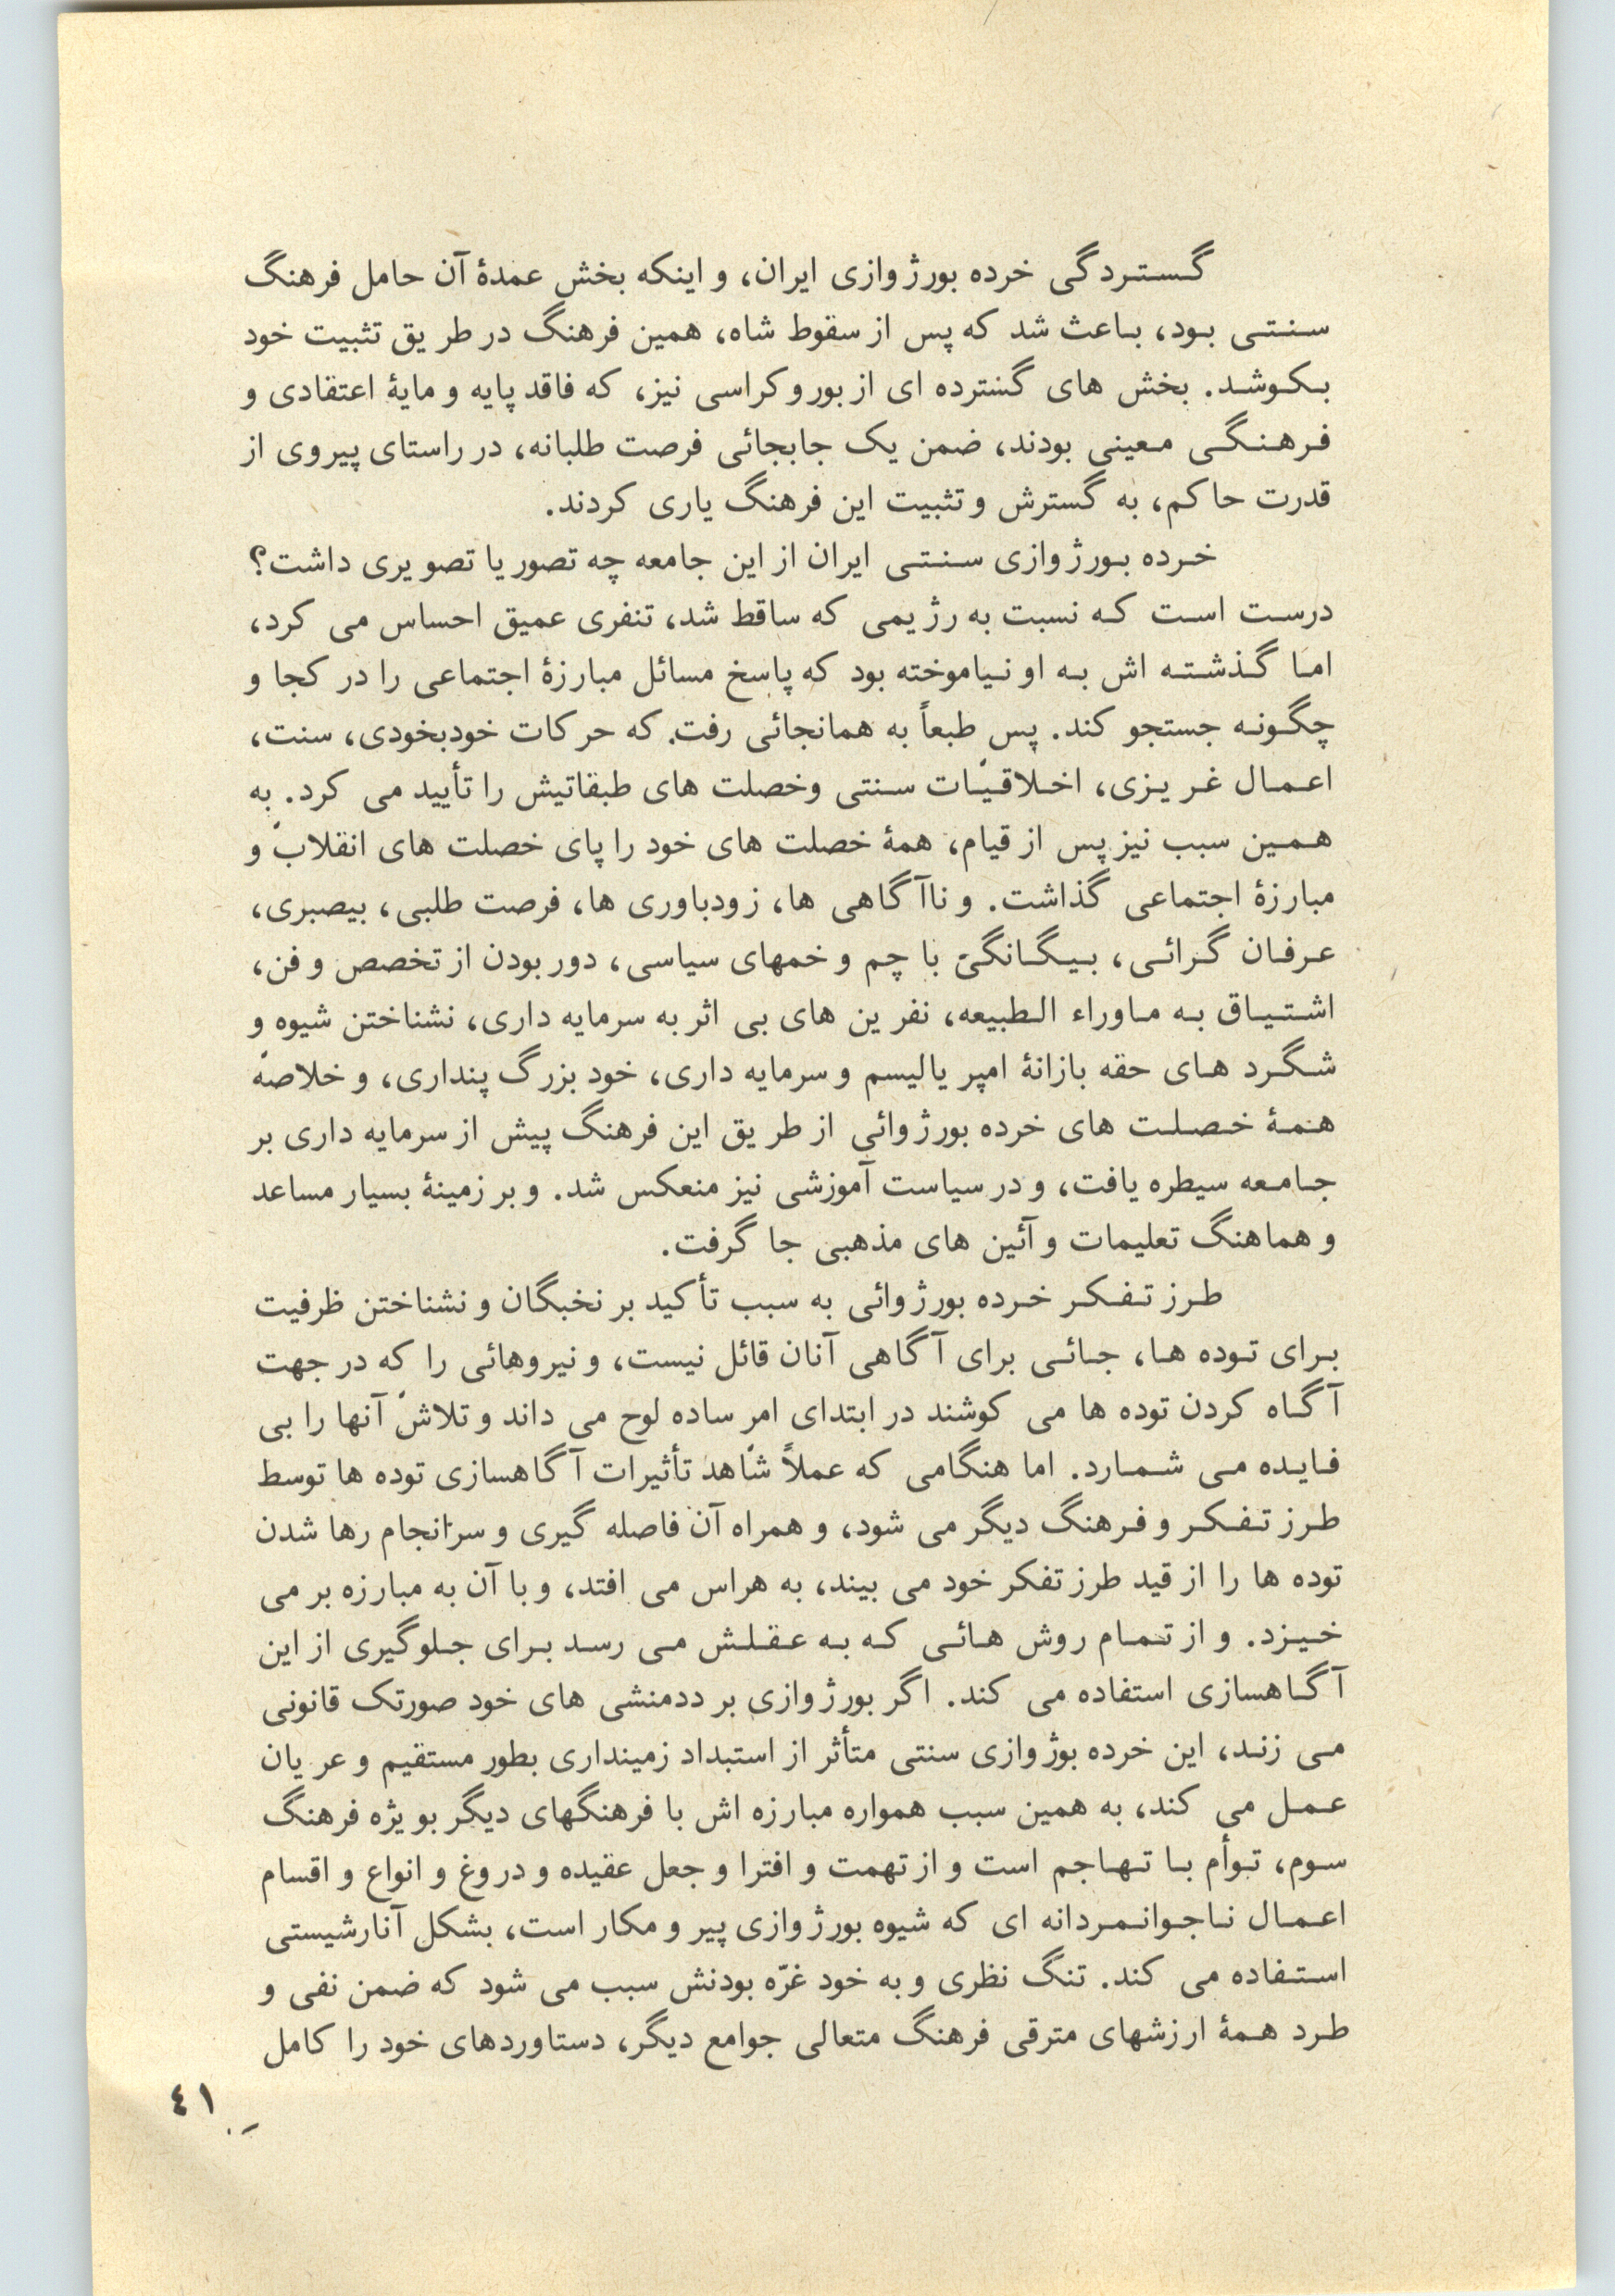 گستردگی خرده بورژوازی ایران، و اینکه بخش عمدهٔ آن حامل فرهنگ
سنتی بود، باعث شد که پس از سقوط شاه، همین فرهنگ در طریق تثبیت خود
بکوشد. بخش های گسترده ای از بوروکراسی نیز، که فاقد پایه و مایهٔ اعتقادی و
فرهنگی معینی بودند، ضمن یک جابجائی فرصت طلبانه، در راستای پیروی از
قدرت حاکم، به گسترش و تثبیت این فرهنگ یاری کردند.
خرده بورژوازی سنتی ایران از این جامعه چه تصور یا تصویری داشت؟
درست است که نسبت به رژیمی که ساقط شد، تنفری عمیق احساس می کرد،
اما گذشته اش به او نیاموخته بود که پاسخ مسائل مبارزهٔ اجتماعی را در کجا و
چگونه جستجو کند. پس طبعاً به همانجائی رفت که حرکات خودبخودی، سنت،
اعمال غریزی، اخلاقیّات سنتی وخصلت های طبقاتیش را تأیید می کرد. به
همین سبب نیز پس از قیام، همهٔ خصلت های خود را پای خصلت های انقلاب و
مبارزهٔ اجتماعی گذاشت. و ناآگاهی ها، زودباوری ها، فرصت طلبی، بیصبری،
عرفان گرائی، بیگانگی با چم و خمهای سیاسی، دور بودن از تخصص و فن،
اشتیاق به ماوراء الطبیعه، نفرین های بی اثر به سرمایه داری، نشناختن شیوه و
شگرد های حقه بازانهٔ امپریالیسم و سرمایه داری، خود بزرگ پنداری، و خلاصه
همهٔ خصلت های خرده بورژوائی از طریق این فرهنگ پیش از سرمایه داری بر
جامعه سیطره یافت، و در سیاست آموزشی نیز منعکس شد. و بر زمینهٔ بسیار مساعد
و هماهنگ تعلیمات و آئین های مذهبی جا گرفت.
طرز تفکر خرده بورژوائی به سبب تأکید بر نخبگان و نشناختن ظرفیت
برای توده ها، جائی برای آگاهی آنان قائل نیست، و نیروهائی را که در جهت
آگاه کردن توده ها می کوشند در ابتدای امر ساده لوح می داند و تلاش آنها را بی
فایده می شمارد. اما هنگامی که عملاً شاهد تأثیرات آگاهسازی توده ها توسط
طرز تفکر و فرهنگ دیگر می شود، و همراه آن فاصله گیری و سرانجام رها شدن
توده ها را از قید طرز تفکر خود می بیند، به هراس می افتد، و با آن به مبارزه بر می
خیزد. و از تمام روش هائی که به عقلش می رسد برای جلوگیری از این
آگاهسازی استفاده می کند. اگر بورژوازی بر ددمنشی های خود صورتک قانونی
می زند، این خرده بوژوازی سنتی متأثر از استبداد زمینداری بطور مستقیم و عریان
عمل می کند، به همین سبب همواره مبارزه اش با فرهنگهای دیگر بویژه فرهنگ
سوم، توأم با تهاجم است و از تهمت و افترا و جعل عقیده و دروغ و انواع و اقسام
اعمال ناجوانمردانه ای که شیوه بورژوازی پیر و مکار است، بشکل آنارشیستی
استفاده می کند. تنگ نظری و به خود غرّه بودنش سبب می شود که ضمن نفی و
طرد همهٔ ارزشهای مترقی فرهنگ متعالی جوامع دیگر، دستاوردهای خود را کامل
٤١